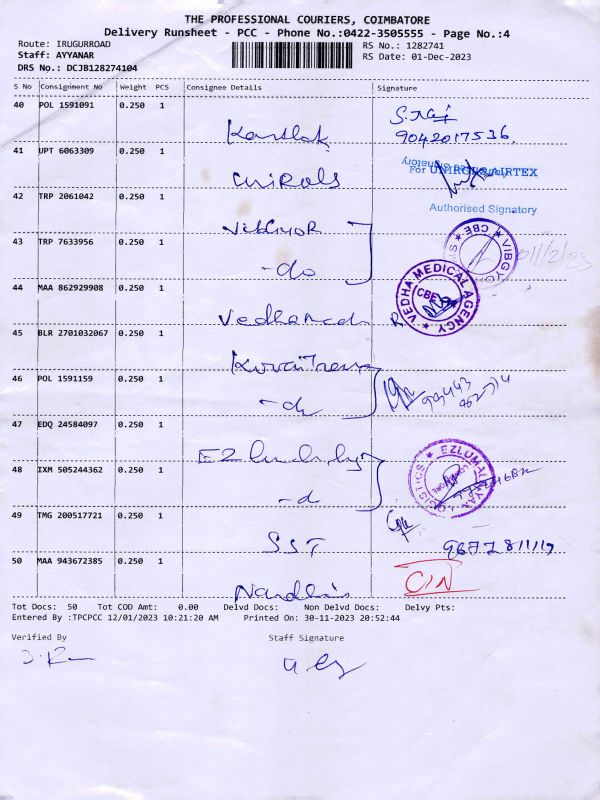 THE PROFESSIONAL COURIERS, COIMBATORE
Delivery Runsheet - PCC - Phone No.:0422-3505555 - Page No.:4
Route: IRUGURROAD
RS No.: 1282741
Staff: AYYANAR
RS Date: 01-Dec-2023
DRS No.: DCJB128274104
S No Consignment No Weight PCS Consignee Details Signature
40 POL 1591091 0.250 1
9042017536
41 UPT 6063309 0.250 1
For UNIROLS AIRTEX
unirols
42 TRP 2061042 0.250 1
Authorised Signatory
VIBGYOR
43 TRP 7633956 0.250 1
VIBGYO
CBE
-do
44 MAA 862929908 0.250 1
VEDHA MEDICAL AGENCY
CBE
45 BLR 2701032067 0.250 1
46 POL 1591159 0.250 1
47 EDQ 24584097 0.250 1
EZ
48 IXM 505244362 0.250 1
EZLUMAL
LOGISTICS
49 TMG 200517721 0.250 1
SST
50 MAA 943672385 0.250 1
Tot Docs: 50 Tot COD Amt: 0.00 Delvd Docs: Non Delvd Docs: Delvy Pts:
Entered By :TPCPCC 12/01/2023 10:21:20 AM Printed On: 30-11-2023 20:52:44
Verified By Staff Signature